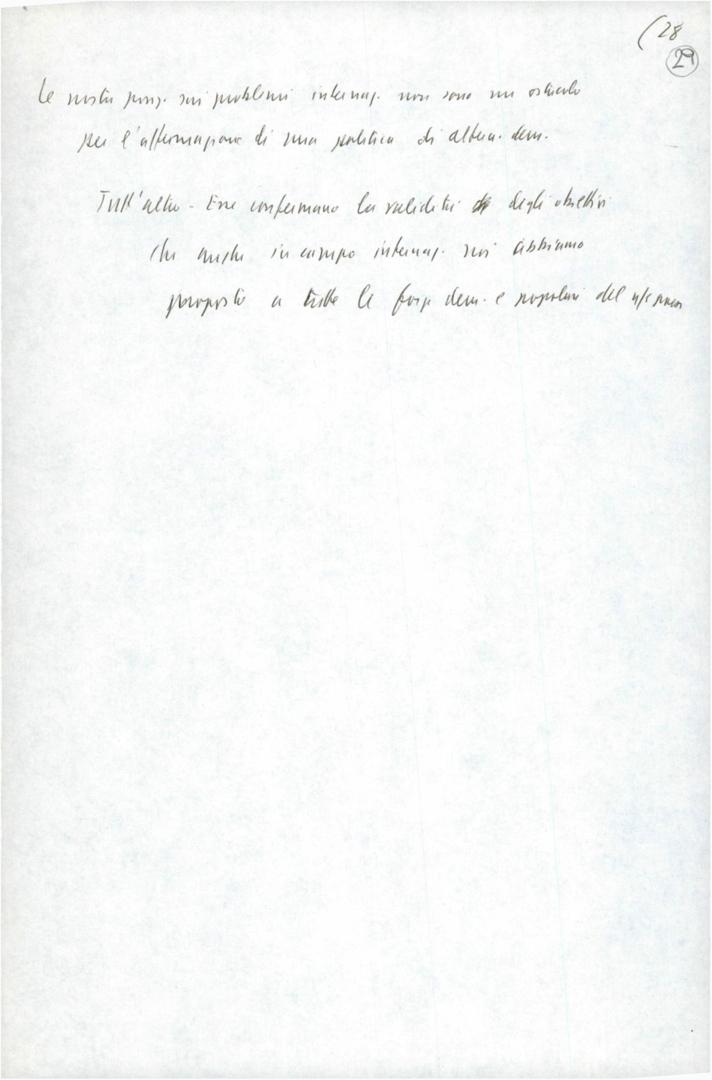 (28
29
Le nostre posiz. sui problemi internaz. non sono un ostacolo
per l'affermazione di una politica di altern. dem.
Tutt'altro - Esse confermano la validità degli obiettivi
che anche in campo internaz. noi abbiamo
proposto a tutte le forze dem. e popolari del n/s paese